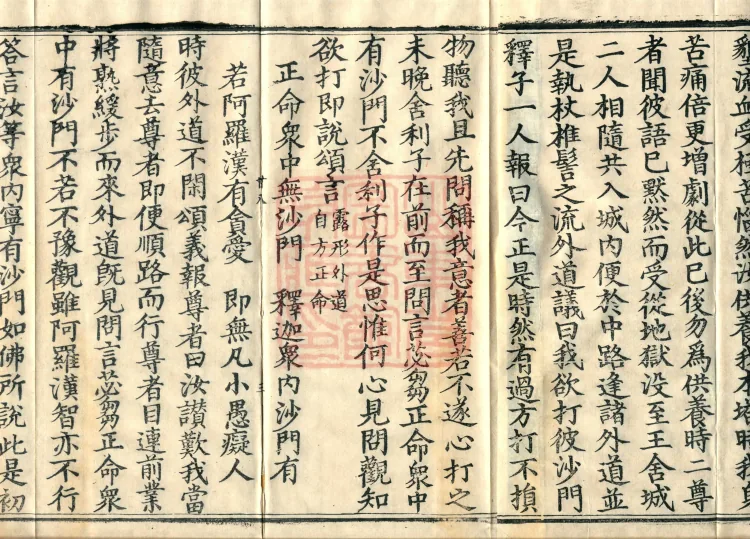 流血受極苦惱
苦痛倍更增劇從此已後勿為供養時二尊
者聞彼語已默然而受從地獄没至王舍城
二人相隨共入城内便於中路逢諸外道並
是執杖椎髻之流外道議曰我欲打彼沙門
釋子一人報曰今正是時然有過方打不損
物聽我且先問稱我意者善若不遂心打之
未晚舍利子在前而至問言苾芻正命衆中
有沙門不舍利子作是思惟何心見問觀知
欲打即說頌言 露形外道
自方正命
正命衆中無沙門 釋迦衆内沙門有
若阿羅漢有貪愛 即無凡小愚癡人
廿八 三
時彼外道不閑頌義報尊者曰汝讚歎我當
隨意去尊者即便順路而行尊者目連前業
將熟緩步而來外道既見問言苾芻正命衆
中有沙門不若不豫觀雖阿羅漢智亦不行
答言汝等衆内寧有沙門如佛所說此是初